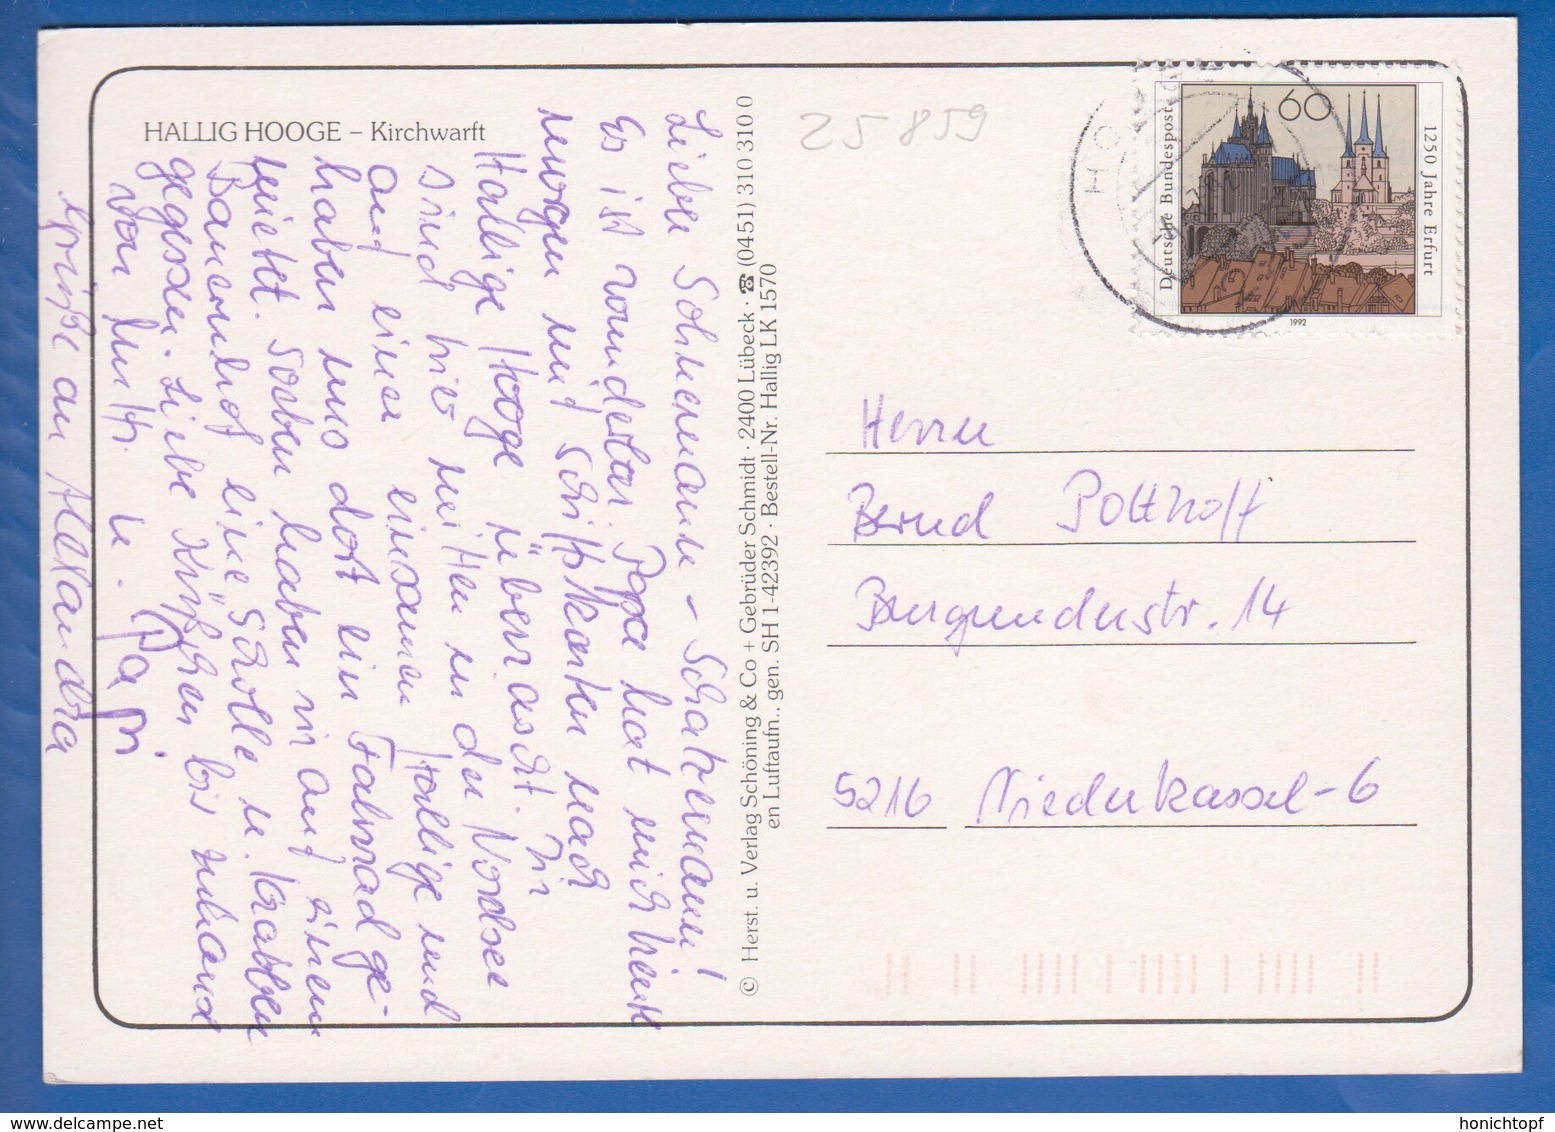 HALLIG HOOGE – Kirchwarft
Liebe Sohnemann – Schatzemann!
Es ist wunderbar Papa hat mich heute
morgen mit Schiffskarten nach
Hallige Hooge überrascht. Wir
sind hier mitten in der Nordsee
auf einer einsamen Hallige und
haben uns dort ein Fahrrad ge-
mietet. Soeben haben wir auf einem
Bauernhof eine Scholle u. Krabben
gegessen. Liebe Küßchen bis
von Mutti u. Papi
Grüße an Alexandra
© Herst. u. Verlag Schöning & Co + Gebrüder Schmidt · 2400 Lübeck · ☎ (0451) 310 310 0
en Luftaufn., gen. SH 1-42392 · Bestell-Nr. Hallig LK 1570
25859
Deutsche Bundespost
60
1250 Jahre Erfurt
1992
Herrn
Bernd Potthoff
Burgunderstr. 14
5216 Niederkassel-6
honichtopf